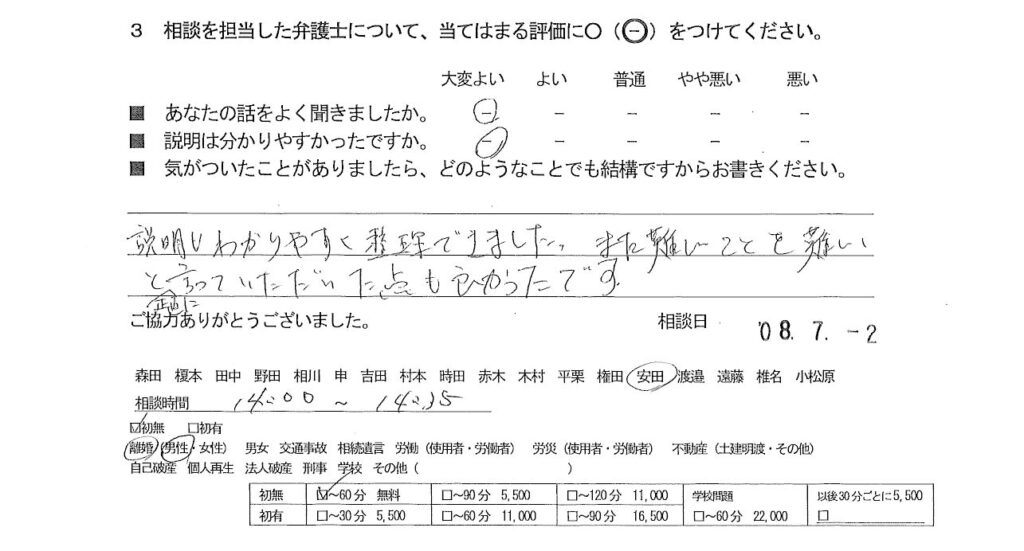 3 相談を担当した弁護士について、当てはまる評価に○(㊀)をつけてください。
大変よい よい 普通 やや悪い 悪い
■ あなたの話をよく聞きましたか。 － － － － －
■ 説明は分かりやすかったですか。 － － － － －
■ 気がついたことがありましたら、どのようなことでも結構ですからお書きください。
説明もわかりやすく整理できました。また難しいことを難しい
と言っていただいた点も良かったです
正直に
ご協力ありがとうございました。 相談日 '08. 7. -2
森田 榎本 田中 野田 相川 申 吉田 村本 時田 赤木 木村 平栗 権田 安田 渡邉 遠藤 椎名 小松原
相談時間 14:00 ~ 14:35
☑初無 □初有
離婚(男性・女性) 男女 交通事故 相続遺言 労働(使用者・労働者) 労災(使用者・労働者) 不動産(土建明渡・その他)
自己破産 個人再生 法人破産 刑事 学校 その他( )
初無 ☑~60分 無料 □~90分 5,500 □~120分 11,000 学校問題 以後30分ごとに5,500
初有 □~30分 5,500 □~60分 11,000 □~90分 16,500 □~60分 22,000 □